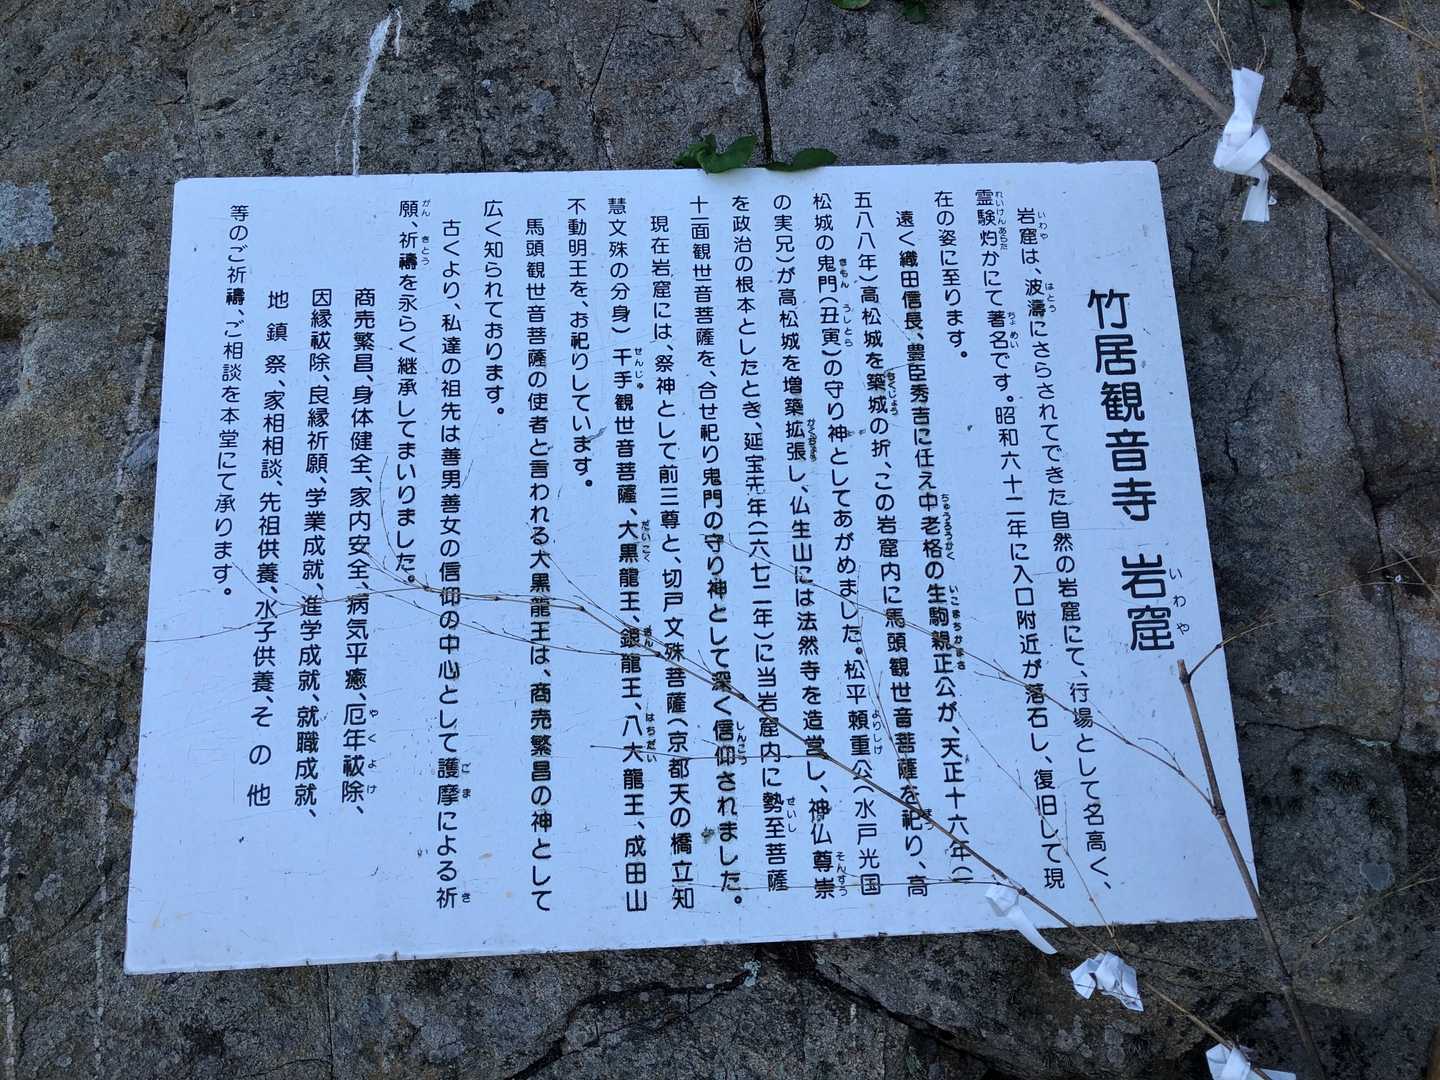 竹居観音寺 岩窟
いわや
岩窟は、波濤にさらされてできた自然の岩窟にて、行場として名高く、
いわや はとう
霊験灼かにて著名です。昭和六十二年に入口附近が落石し、復旧して現
れいけんあらたか ちょめい
在の姿に至ります。
遠く織田信長、豊臣秀吉に仕え中老格の生駒親正公が、天正十六年(一
ちゅうろうかく いこまちかまさ
五八八年)高松城を築城の折、この岩窟内に馬頭観世音菩薩を祀り、高
ちくじょう まつ
松城の鬼門(丑寅)の守り神としてあがめました。松平頼重公(水戸光国
きもん うしとら よりしげ
の実兄)が高松城を増築拡張し、仏生山には法然寺を造営し、神仏尊崇
かくちょう そんすう
を政治の根本としたとき、延宝元年(一六七二年)に当岩窟内に勢至菩薩
せいし
十一面観世音菩薩を、合せ祀り鬼門の守り神として深く信仰されました。
しんこう
現在岩窟には、祭神として前三尊と、切戸文殊菩薩(京都天の橋立知
慧文殊の分身)千手観世音菩薩、大黒龍王、銀龍王、八大龍王、成田山
せんじゅ だいこく ぎん はちだい
不動明王を、お祀りしています。
馬頭観世音菩薩の使者と言われる大黒龍王は、商売繁昌の神として
広く知られております。
古くより、私達の祖先は善男善女の信仰の中心として護摩による祈
ごま き
願、祈禱を永らく継承してまいりました。
がん きとう い
商売繁昌、身体健全、家内安全、病気平癒、厄年祓除、
やく よけ
因縁祓除、良縁祈願、学業成就、進学成就、就職成就、
地鎮祭、家相相談、先祖供養、水子供養、その他
等のご祈禱、ご相談を本堂にて承ります。